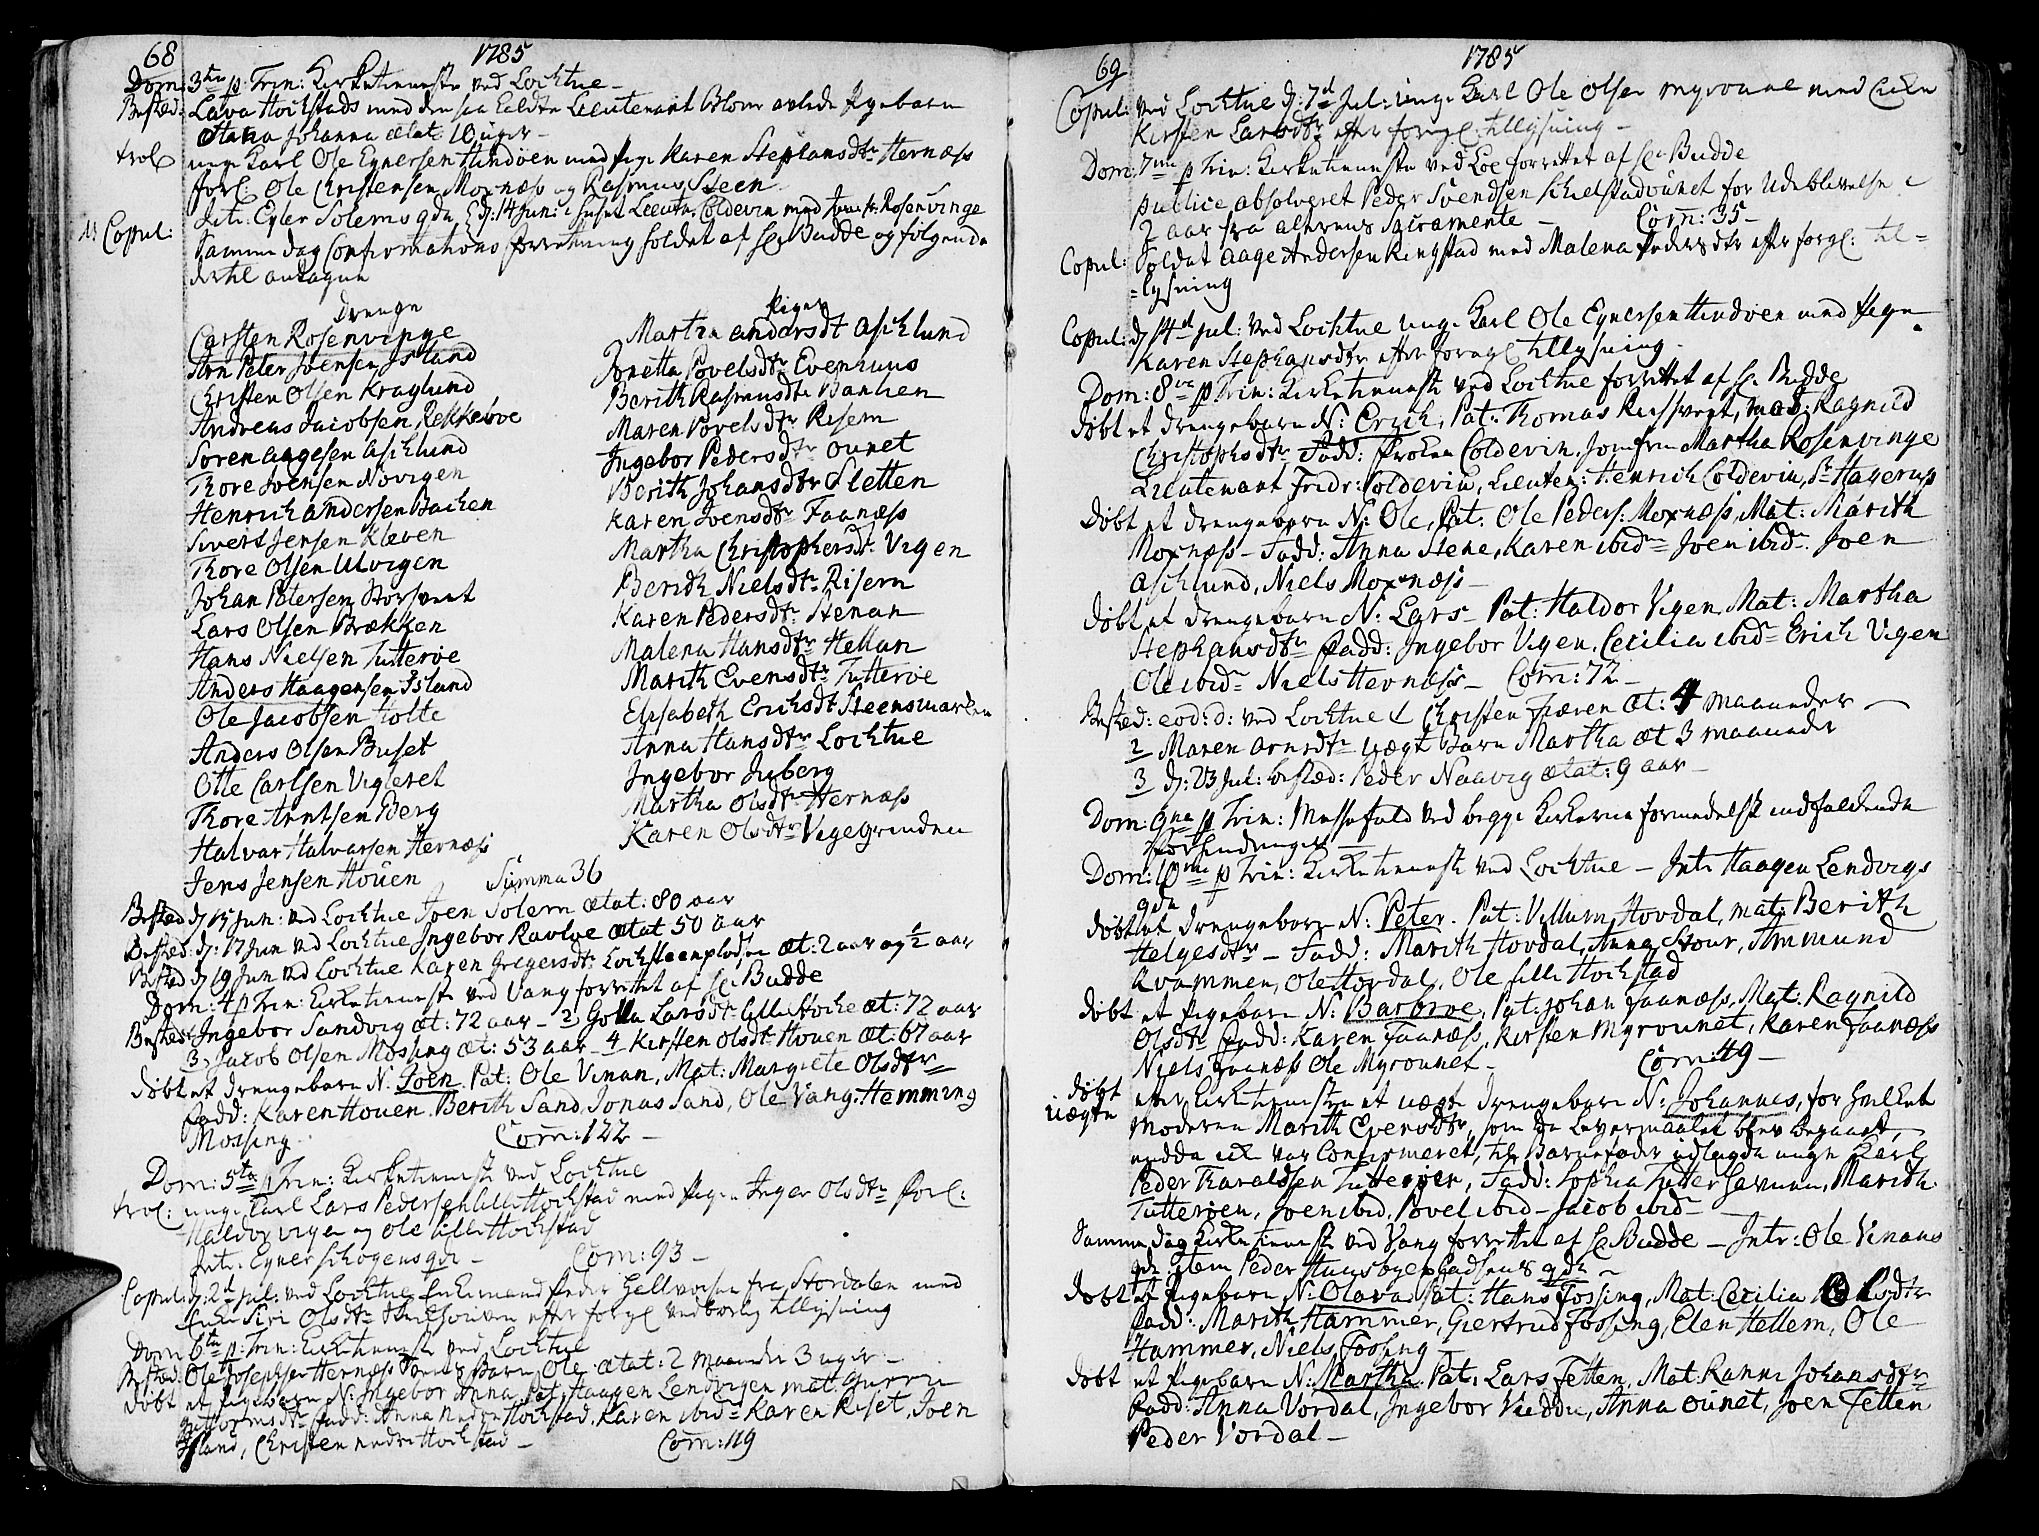 68 1785
Dom: 3tia p. Trin: Kirketieneste ved Lochtue
Bested: Lava Hochstads med den saa kaldte Lieutenant avlede Pigebarn
Johanna ætat: 10 uger
trol: unge Karl Ole Eynersen Hindøen med Pige Karen Stephansdtr Hernæss
forl: Ole Christensen Moxnæss og Rasmus Steen
Intr: Eyler Solems qda d: 14 Jun: Lieuten. Coldevin med Rosenvinge
11 Copul: Samme dag Confirmations forretning holdet af Hr Budde og følgende
dertil antagne
Drenge
Carsten Rosenvinge
Arn Peter Joensen Island
Christen Olsen Kraglund
Andreas Jacobsen Rekkerøe
Soren Aagesen Aschlund
Thore Joensen Nøvigen
Henrich Andersen Bachen
Sivert Jensen Kleven
Thore Olsen Ulvigen
Johan Petersen Storsvent
Lars Olsen Brækken
Hans Nielsen Tutterøe
Anders Haagensen Island
Ole Jacobsen Holte
Anders Olsen Buset
Otte Carlsen Vigleret
Thore Arntsen Berg
Halvar Halvarsen Hernæss
Jens Jensen Hoüen
Piger
Martha Andersdt Aschlund
Jonetta Povelsdtr Evenhuus
Berith Rasmusdtr Banken
Maren Povelsdtr Risem
Ingebor Pedersdtr Øunet
Berith Johansdtr Sletten
Karen Joensdtr Faanæss
Martha Christophersdt: Vigen
Berith Nielsdtr Risem
Karen Pedersdtr Stenan
Malena Hansdtr Hellan
Marith Evensdtr Tutterøe
Elisabeth Erichsdt Steensmarken
Anna Hansdtr Lochtue
Ingebor Juberg
Martha Olsdtr Hernæss
Karen Olsdtr Vegegrinden
Summa 36
Bested d 15 Jun: ved Lochtue Joen Solem ætat: 80 aar
Bested: d: 17 Jun ved Lochtue Ingebor Ravloe ætat 50 aar
Bested d 19 Jun ved Lochtue Karen Gregersdt: Lochsteenplodsen æt: 2 aar og 1/2 aar
Dom: 4 p Trin: Kirketieneste ved Vang forrettet af Hr Budde
Bested Ingebor Sandvig æt: 72 aar – 2 Golla Larsdt Lille Hocke æt: 72 aar
3 Jacob Olsen Mossing æt: 53 aar 4 Kirsten Olsdt Hoüen æt: 67 aar
døbt et drengebarn N: Joen. Pat: Ole Vinan, Mat: Margrete Olsdtr
Fadd: Karen Hoüen. Berith Sand, Jonas Sand, Ole Vang. Hemming
Mossing. Com: 122 –
Dom: 5ta p Trin: Kirketieneste ved Lochtue
trol: unge Karl Lars Pedersen Lille Hochstad med Pigen Inger Olsdtr forl:
Haldor Vigen og Ole Lille Hochstad
Intr: Eyner Schogens qda Com: 93 –
Copul: d: 2d Jul: ved Lochtue Enkemand Peder Hallvorsen fra Stordalen med
Enke Siri Olsdtr efter forgl vedbørlig tillysning
Dom 6ta p: Trin: Kirketieneste ved Lochtue
Bested: Ole Josephsen Hernæss Barn Ole ætat: 2 Maaneder 3 uger –
døbt et Pigebarn N: Ingebor Anna, Pat: Haagen Lendvigen mat: Gurru
Guttormsdtr Fadd: Anna Nedre Hochstad, Karen ibid Karen Riset, Joen
Island, Christen nedre Hochstad – Com: 119
69 1785
Copul: ved Lochtue d: 7d Jul: unge Karl Ole Olsen Myrounet med Enken
Kirsten Larsdtr efter forgl: tillysning –
Dom: 7ma p Trin: Kirketieneste ved Loe forrettet af Hr Budde
publice absolveret Peder Svendsen Schielstadounet for Udeblivelse i
2 aar fra Alterens Sacramente – Com: 35 –
Copul: Soldat Aage Andersen Ringstad med Malena Pedersdtr efter forgl: til=
=lysning
Copul: d 14d Jul: ved Lochtue unge Karl Ole Eynersen Hindøen med Pigen
Karen Stephansdtr efter forgl tillysning.
Dom: 8va p Trin: Kirketieneste ved Lochtue forrettet af Hr Budde
døbt et drengebarn N: Erich, Pat. Thomas Reissvent, mat: Ragnild
Christophsdtr Fadd: Frøken Coldevin. Jomfru Martha Rosenvinge
Lieutenant Fridr: Coldevin, Lieuten: Henrich Coldevin, Sr Hagerup
døbt et drengebarn N: Ole, Pat. Ole Peders: Moxnæss, Mat: Marith
Moxnæss – Fadd: Anna Stene, Karen ibidm Joen ibidm Joen
Aschlund, Niels Moxnæss –
døbt et drengebarn N: Lars – Pat: Haldor Vigen, Mat: Martha
Stephansdtr Fadd: Ingebor Vigen, Cecilia ibidm Erich Vigen
Ole ibidm Niels Hevnæss – Com: 72 –
Bested: eod: d: ved Lochtue 1 Christen Fiæren æt: 4 maaneder –
2 Maren Arnsdtr uægte Barn Martha æt 3 maaneder
3 d: 23 Jul: bested: Peder Naavig ætat: 9 aar –
Dom: 9na p Trin: Messefald ved begge Kirkerne formedelst indfaldende
Forhindringer –
Dom: 10ma p Trin: Kirketieneste ved Lochtue – Intr Haagen Lendvigs
qda
døbt et drengebarn N: Peter. Pat: Villum Hovdal, mat: Berith
Helgesdtr – Fadd: Marith Hovdal, Anna Stour, Ammund
Kvammen, Ole Hovdal, Ole Lille Hochstad
døbt et Pigebarn N: Barbroe, Pat: Johan Faanæss, Mat: Ragnild
Olsdtr Fadd: Karen Faanæss, Kirsten Myrounet, Karen Faanæss
Niels Faanæss Ole Myrounet – Com: 119 –
døbt uægte efter Kirketienesten et uægte drengebarn N: Johannes, for hvilket
Moderen Marith Evensdtr, som da Leyermaalet blev begaaet,
endda ikke var Confirmeret, til Barnefader udlagde unge Karl
Peder Tharaldsen Tutterøen, Fadd: Sophia Tutterhavnen, Marith
Tutterøen, Joen ibid, Povel ibid – Jacob ibid –
Samme dag Kirketieneste ved Vang forrettet af Hr Budde – Intr: Ole Vinans
qda item Peder qda
døbt et Pigebarn N: Olava. Pat: Hans Fossing, Mat: Cecilia Olsdtr
Fadd: Marith Hammer, Giertrud Fossing, Elen Hellem, Ole
Hammer, Niels Fossing –
døbt et Pigebarn N: Martha. Pat: Lars Fetten, Mat. Ranni Johansdtr
Fadd: Anna Vordal, Ingebor Vudduu, Anna Øunet, Joen Fetten
Peder Vordal –